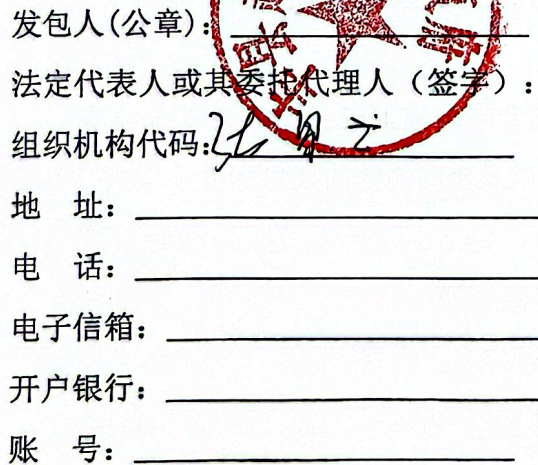 发包人(公章):
法定代表人或其委托代理人（签字）:
组织机构代码:
地 址:
电 话:
电子信箱:
开户银行:
账 号: